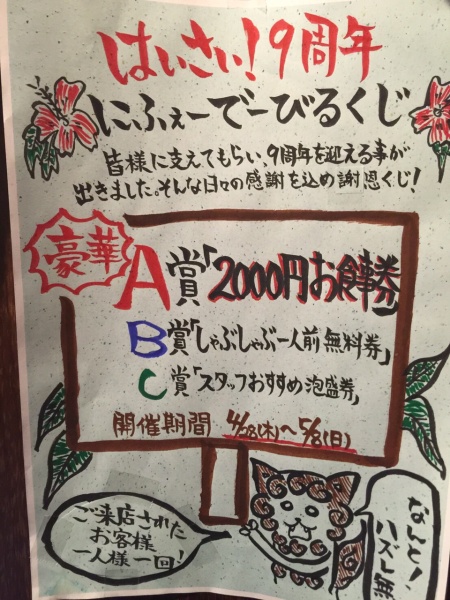 はいさい!9周年
にふぇーでーびるくじ
皆様に支えてもらい、9周年を迎える事が
出きました。そんな日々の感謝を込め謝恩くじ!
豪華
A賞「2000円お食事券」
B賞「しゃぶしゃぶ一人前無料券」
C賞「スタッフおすすめ泡盛券」
開催期間 4/28(木)〜5/8(日)
ご来店された
お客様
一人様一回!
なんと!
ハズレ無